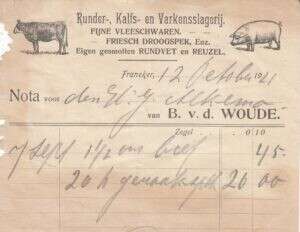 Runder-, Kalfs- en Varkensslagerij.
FIJNE VLEESCHWAREN.
FRIESCH DROOGSPEK, Enz.
Eigen gesmolten RUNDVET en REUZEL.
Franeker, 12 October 1921
Nota voor den
van B. v. d. WOUDE.
Zegel 0 10
7 Sept 1½ ons 45
20 20 00